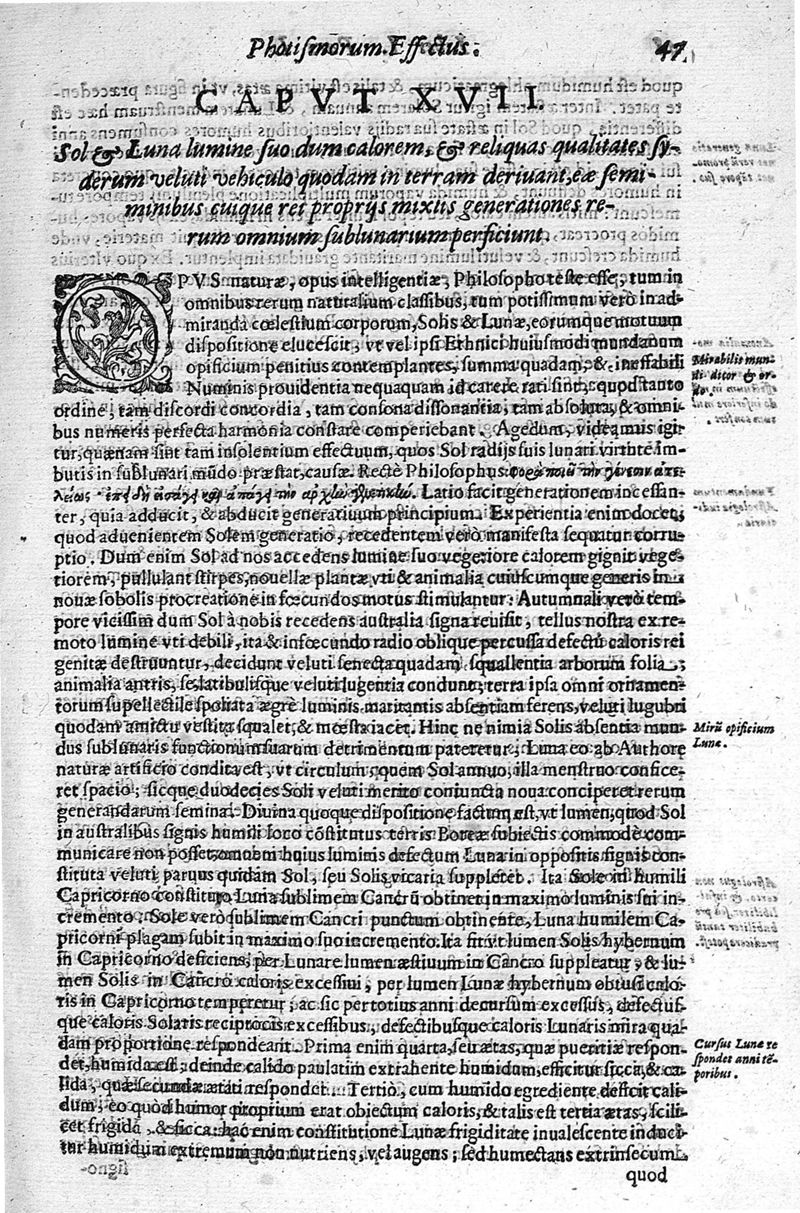 Photismorum Effectus.
47
CAPVT XVII.
Sol & Luna lumine suo dum calorem, & reliquas qualitates sy-
derum veluti vehiculo quodam in terram deriuant, eæ semi-
minibus cuique rei proprijs mixtis generationes re-
rum omnium sublunarium perficiunt.
OPVS naturæ, opus intelligentiæ, Philosopho teste esse, tum in
omnibus rerum naturalium classibus, tum potissimum verò in ad-
miranda cœlestium corporum, Solis & Lunæ, eorumque motuum
dispositione elucescit, vt vel ipsi Ethnici huiusmodi mundanum
opificium penitius contemplantes, summa quadam, & ineffabili
Numinis prouidentia nequaquam id carere rati sint; quod tanto
ordine, tam discordi concordia, tam consona dissonantia, tam absoluta, & omni-
bus numeris perfecta harmonia constare comperiebant. Agedum, videamus igi-
tur, quænam sint tam insolentium effectuum, quos Sol radijs suis lunari virtute im-
butis in sublunari mūdo præstat, causæ. Rectè Philosophus:
Latio facit generationem incessan-
ter, quia adducit, & abducit generatiuum principium. Experientia enim docet,
quod aduenientem Solem generatio, recedentem verò manifesta sequatur corru-
ptio. Dum enim Sol ad nos accedens lumine suo vegetiore calorem gignit vege-
tiorem, pullulant stirpes, nouellæ plantæ vti & animalia cuiuscumque generis in
nouæ sobolis procreatione in fœcundos motus stimulantur: Autumnali verò tem-
pore vicissim dum Sol à nobis recedens australia signa reuisit, tellus nostra ex re-
moto lumine vti debili, ita & infœcundo radio oblique percussa defectū caloris rei
genitæ destruuntur, decidunt veluti senecta quadam squallentia arborum folia;
animalia antris, se latibulisque veluti lugentia condunt; terra ipsa omni ornamen-
torum supellectile spoliata ægre luminis maritantis absentiam ferens, veluti lugubri
quodam amictu vestita squalet, & mœsta iacet. Hinc ne nimia Solis absentia mun-
dus sublunaris functionum suarum detrimentum pateretur; Luna eo ab Authore
naturæ artificio condita est, vt circulum, quem Sol annuo, illa menstruo confice-
ret spacio; sicque duodecies Soli veluti merito coniuncta noua conciperet rerum
generandarum semina. Diuina quoque dispositione factum est, vt lumen, quod Sol
in australibus signis humili loco cōstitutus terris Boreæ subiectis commodè com-
municare non posset, omnem huius luminis defectum Luna in oppositis signis con-
stituta veluti paruus quidam Sol, seu Solis vicaria suppleret. Ita Sole in humili
Capricorno constituto, Luna sublimem Cancrū obtinet in maximo luminis sui in-
cremento. Sole verò sublimem Cancri punctum obtinente, Luna humilem Ca-
pricorni plagam subit in maximo suo incremento. Ita fit vt lumen Solis hybernum
in Capricorno deficiens, per Lunare lumen æstiuum in Cancro suppleatur, & lu-
men Solis in Cancro caloris excessiui, per lumen Lunæ hybernum obtusi calo-
ris in Capricorno temperetur; ac sic per totius anni decursum excessus, defectus-
que caloris Solaris reciprocis excessibus, defectibusque caloris Lunaris mira qua-
dam proportione respondeant. Prima enim quarta, seu ætas, quæ pueritiæ respon-
det, humida est; deinde calido paulatim extrahente humidum, efficitur sicca, & ca-
lida, quæ secundæ ætati respondet. Tertiò, cum humido egrediente deficit cali-
dum; eo quod humor proprium erat obiectum caloris, & talis est tertia ætas, scili-
cet frigida, & sicca: hac enim constitutione Lunæ frigiditate inualescente induci-
tur humidum extremum non nutriens, vel augens; sed humectans extrinsecum
quod
Mirabilis mun-
di ditor & or-
do.
Mirū opificium
Lunæ.
Cursus Lunæ re
spondet anni tē-
poribus.